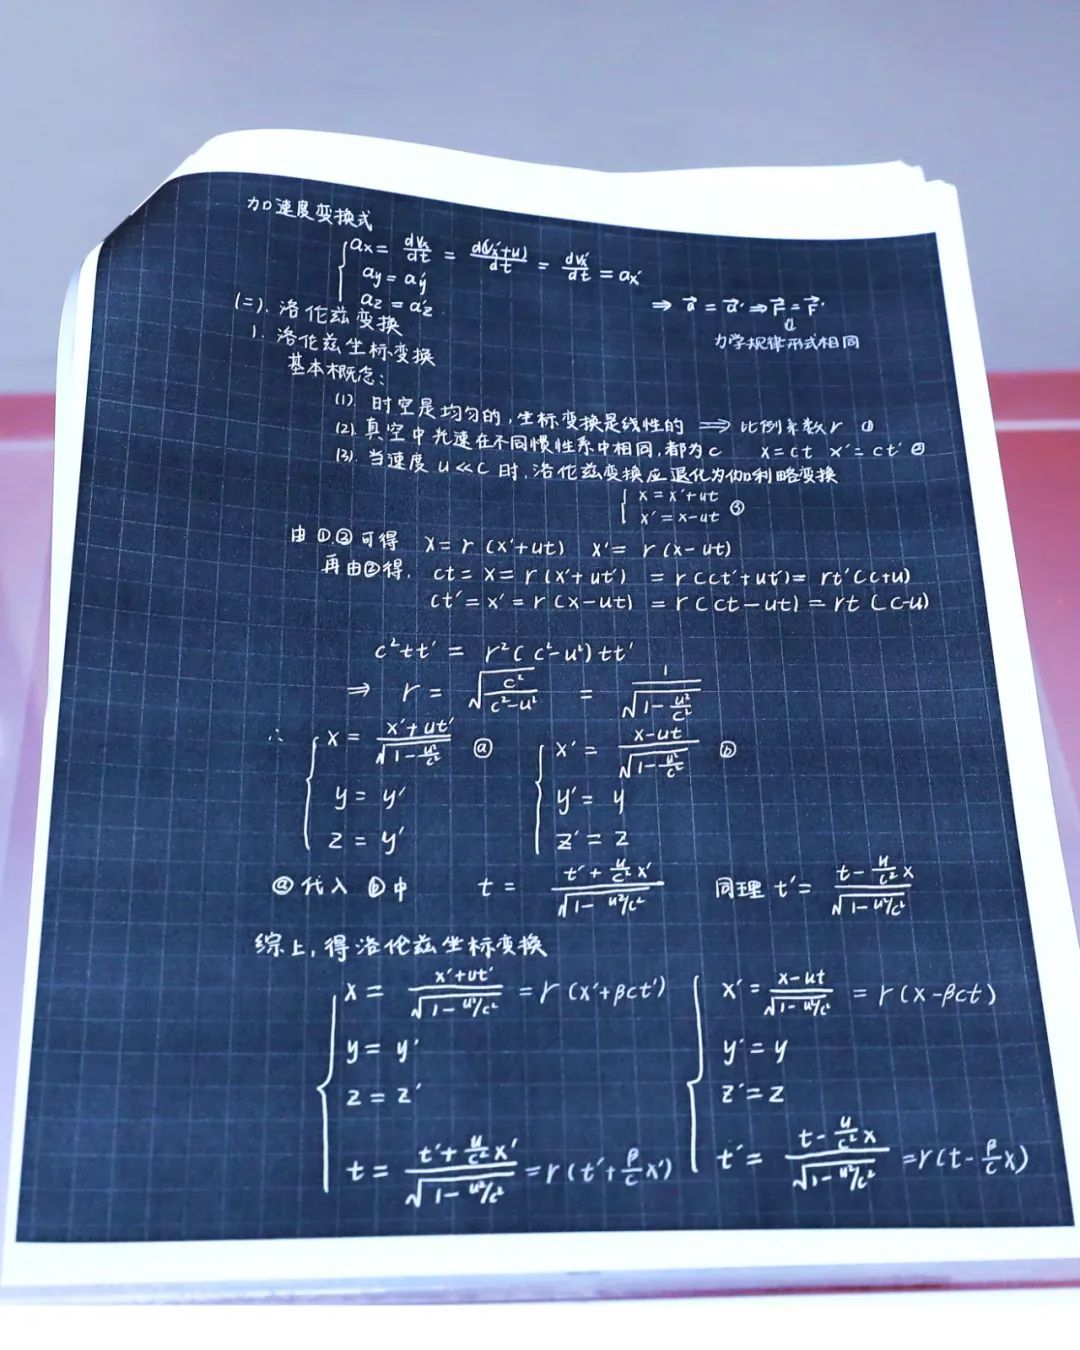 加速度变换式
ax = dvx/dt = d(vx′+u)/dt = dvx′/dt = ax′
ay = ay′
az = az′
⇒ a⃗ = a⃗′ ⇒ F⃗ = F⃗′
⇓
力学规律形式相同
(二). 洛伦兹变换
1. 洛伦兹坐标变换
基本概念:
(1) 时空是均匀的,坐标变换是线性的 ⟹ 比例系数r ①
(2). 真空中光速在不同惯性系中相同,都为c x=ct x′=ct′ ②
(3). 当速度 u≪c 时,洛伦兹变换应退化为伽利略变换
x=x′+ut
x′=x-ut ③
由①③可得 x=r(x′+ut) x′= r(x-ut)
再由②得, ct=x=r(x′+ut′) =r(ct′+ut′)= rt′(c+u)
ct′=x′=r(x-ut) =r(ct-ut)=rt(c-u)
c²tt′= r²(c²-u²)tt′
⇒ r= √(c²/(c²-u²)) = 1/√(1-u²/c²)
∴ x= (x′+ut′)/√(1-u²/c²) ⓐ x′= (x-ut)/√(1-u²/c²) ⓑ
y= y′ y′= y
z = y′ z′= z
ⓐ代入ⓑ中 t= (t′+u/c² x′)/√(1-u²/c²) 同理 t′= (t-u/c² x)/√(1-u²/c²)
综上,得洛伦兹坐标变换
x= (x′+ut′)/√(1-u²/c²) =r(x′+βct′) x′= (x-ut)/√(1-u²/c²) =r(x-βct)
y=y′ y′=y
z=z′ z′=z
t= (t′+u/c² x′)/√(1-u²/c²) =r(t′+β/c x′) t′= (t-u/c² x)/√(1-u²/c²) =r(t-β/c x)